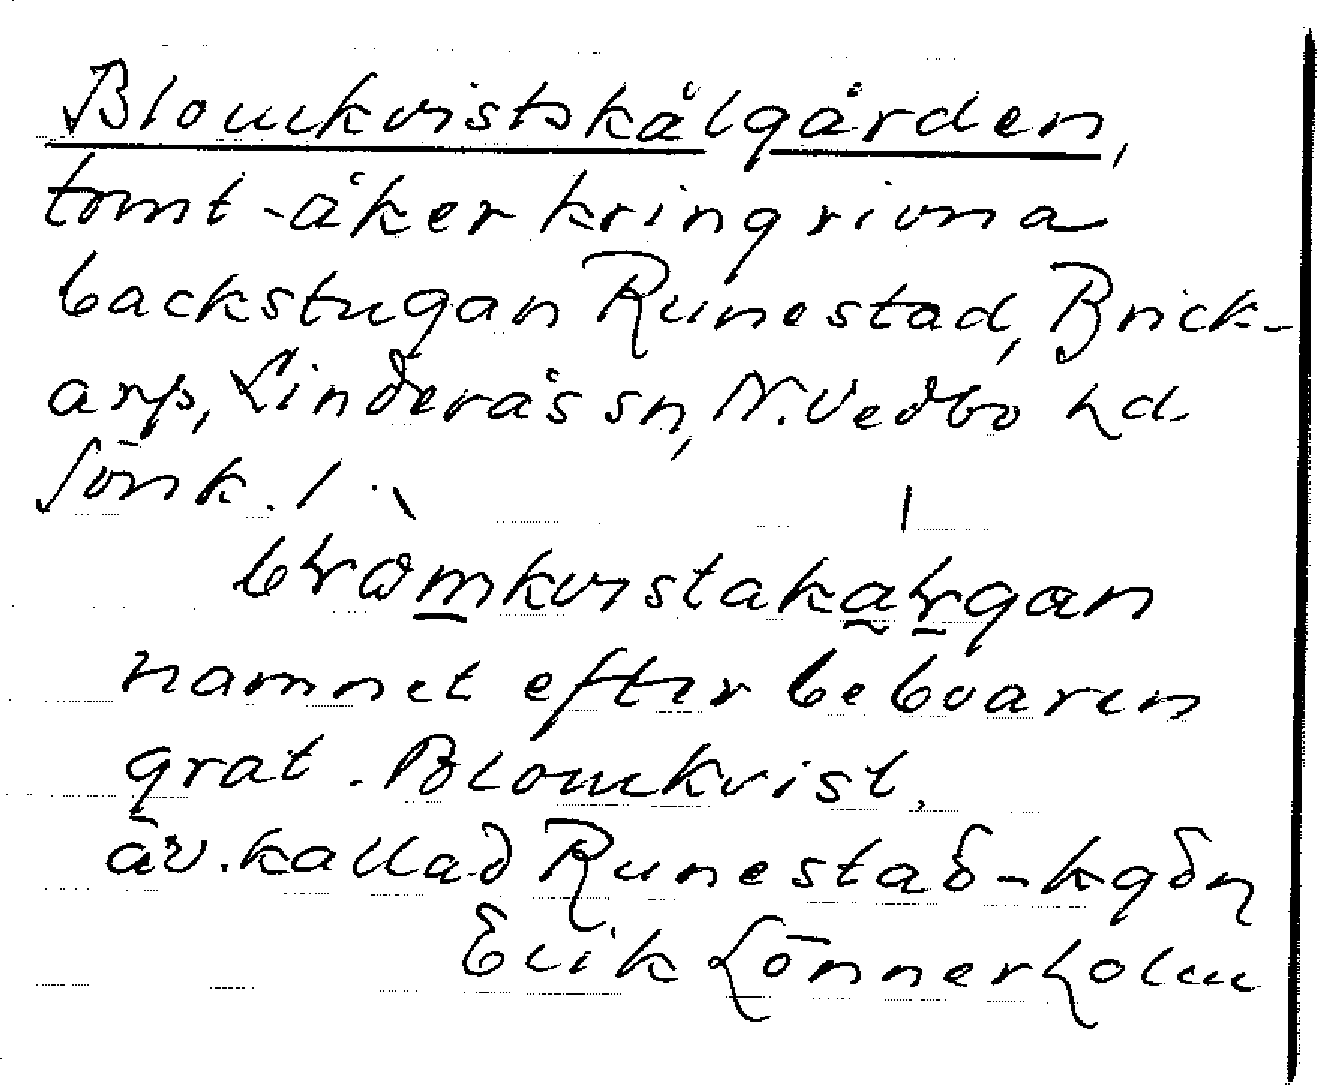 Blomkvistskålgården,
tomt-åker kring rivna
backstugan Runestad, Brick-
arp, Linderås sn, N. Vedbo hd.
Jönk. l.
namnet efter beboaren
grat. Blomkvist,
äv. kallad Runestad-kgdn
Erik Lönnerholm